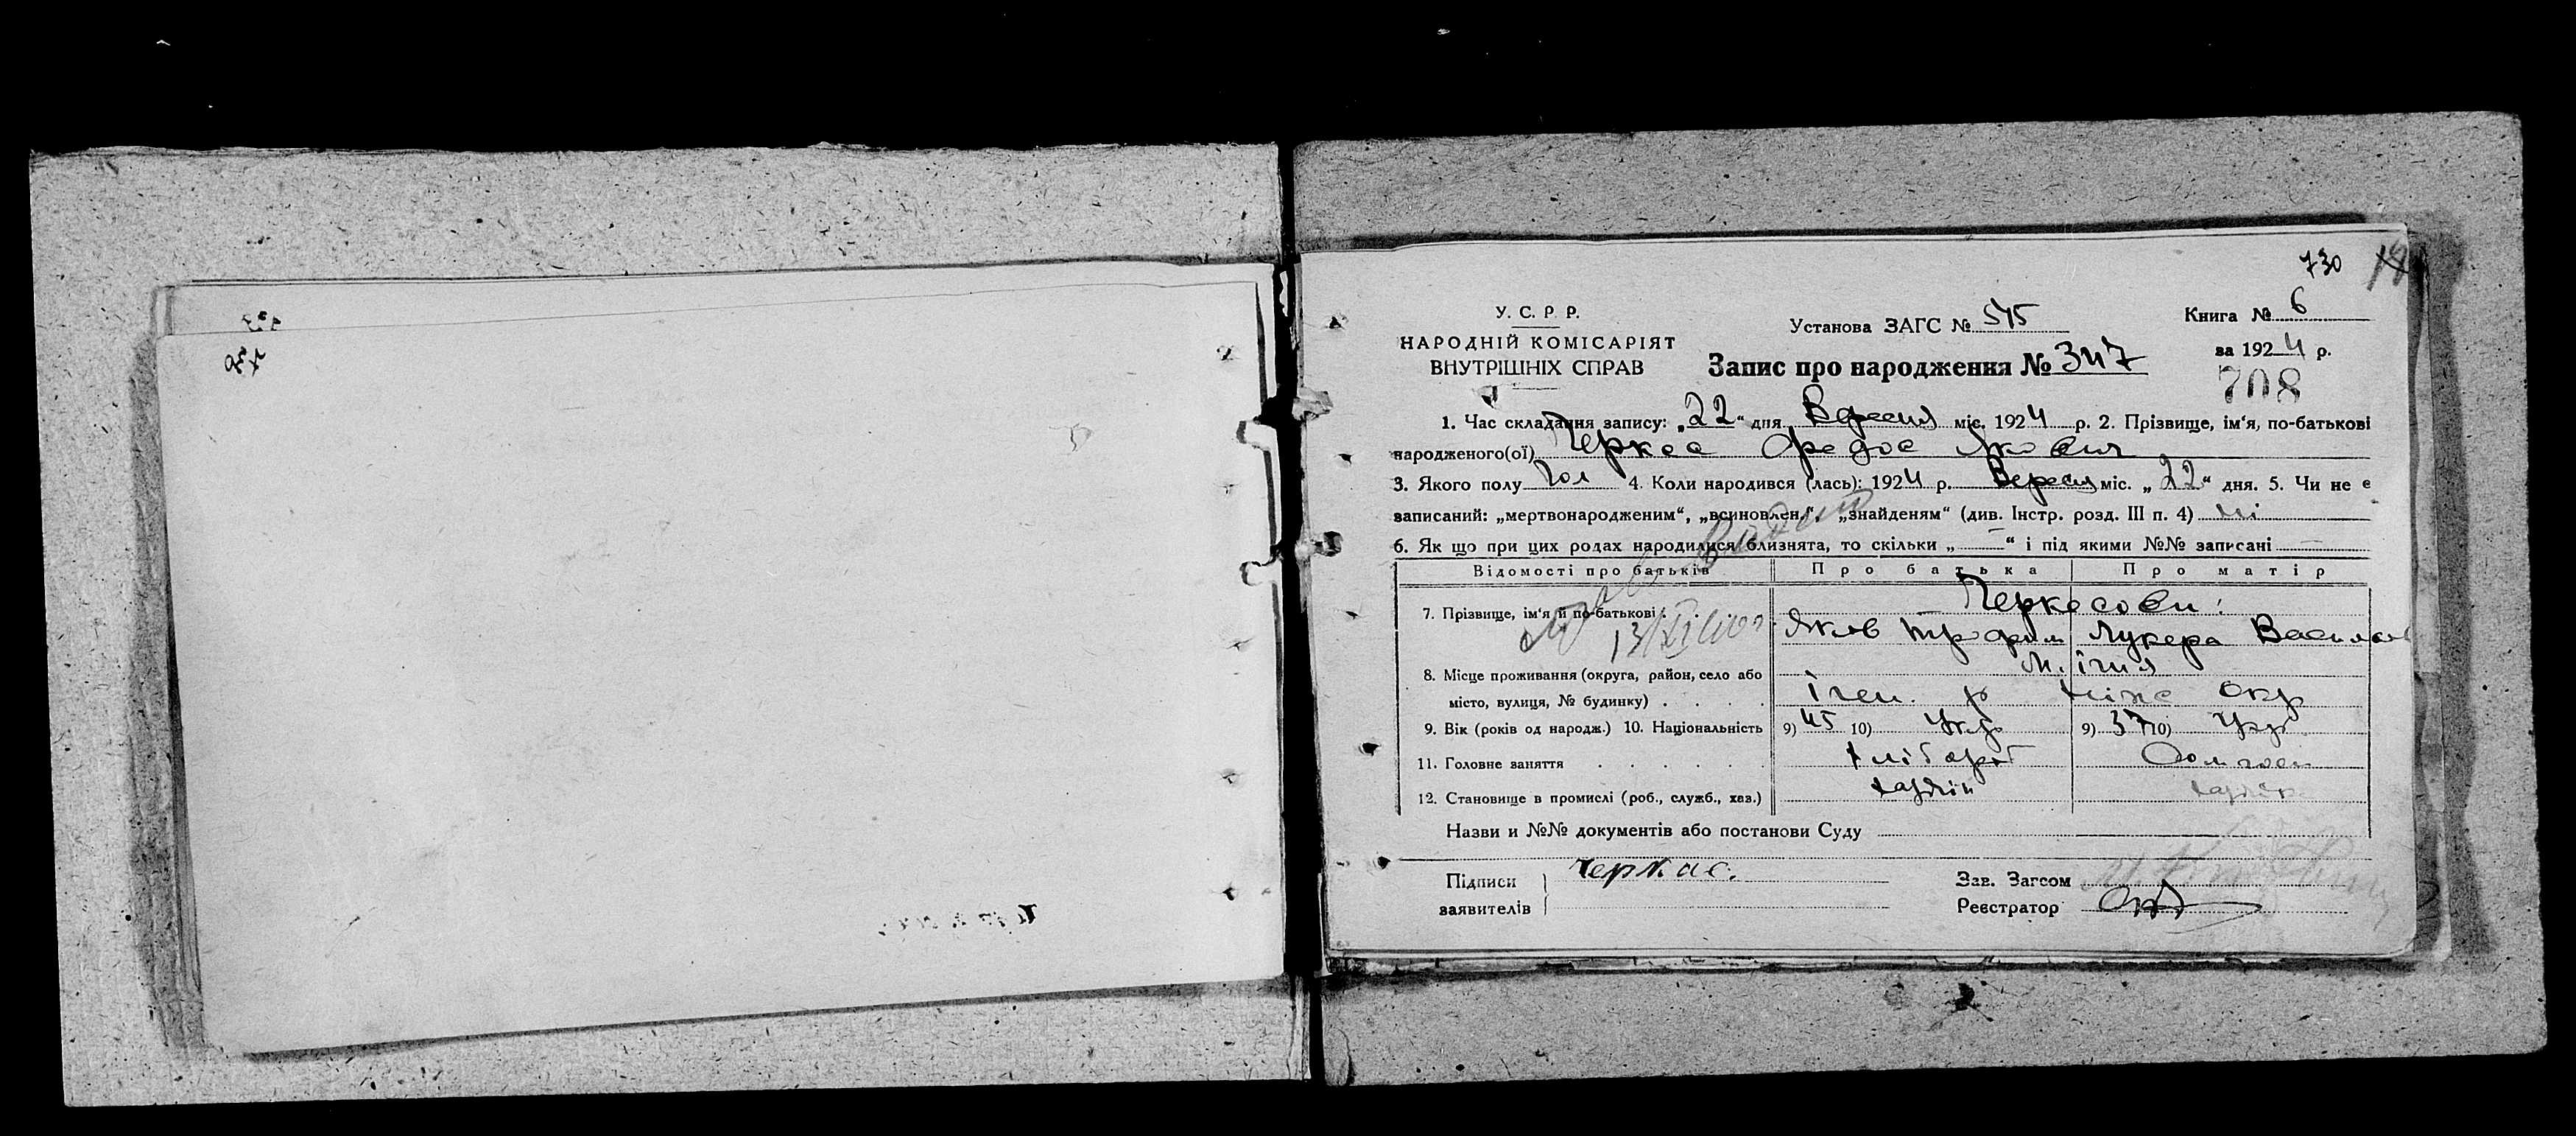 730
У. С. Р. Р.
НАРОДНІЙ КОМІСАРІЯТ
ВНУТРІШНІХ СПРАВ
Установа ЗАГС № 515
Книга № 6
за 1924 р.
Запис про народження № 347
708
1. Час складання запису: „22“ дня Вересня міс. 1924 р. 2. Прізвище, ім‘я, по-батькові
народженого(ої) Черкас Федос Якович
3. Якого полу чол 4. Коли народився (лась): 1924 р. Вересня міс. „22“ дня. 5. Чи не є
записаний: „мертвонародженим“, „всиновлен.“, „знайденям“ (див. Інстр. розд. III п. 4) ні
6. Як що при цих родах народилися близнята, то скільки „—“ і під якими №№ записані —
Відомості про батьків Про батька Про матір
Черкасови:
7. Прізвище, ім‘я й по-батькові Яков Трофим Лукера Васил
м. ігня
8. Місце проживання (округа, район, село або
місто, вулиця, № будинку) ічен. р Ніже окр
9. Вік (років од народж.) 10. Національність 9) 45 10) Укр 9) 37 10) Укр
11. Головне заняття хлібороб Домгосп
12. Становище в промислі (роб., служб., хаз.) хазяїн
Назви и №№ документів або постанови Суду
Підписи заявителів Черкас.
Зав. Загсом
Реєстратор